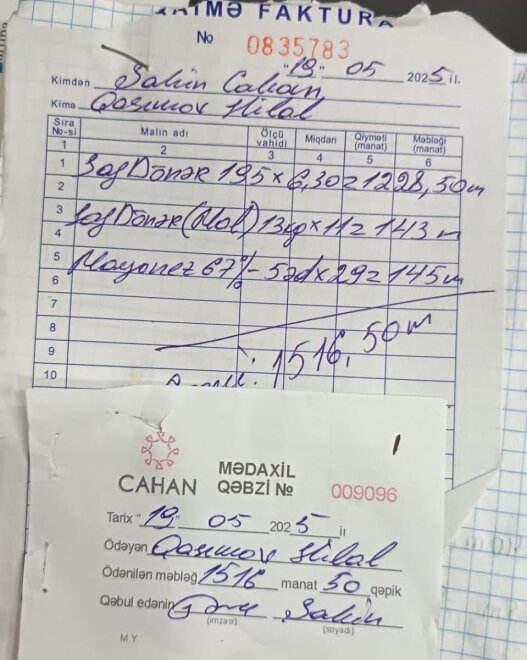 FAKTURA
№ 0835783
"19" 05 2025 il.
Kimdən Şahin Cahan
Kimə Qasımov Hilal
Sıra №-si Malın adı Ölçü vahidi Miqdarı Qiyməti (manat) Məbləği (manat)
1 2 3 4 5 6
1 Dönər 195 x 6,30 = 1228,50 m
2
3 Dönər (Mal) 13 kq x 11 = 143 m
4
5 Mayonez 67% - 5əd x 29 = 145 m
6
7
8 1516,50 m
9
10
CAHAN
MƏDAXİL QƏBZİ № 009096
Tarix "19" 05 2025 il
Ödəyən Qasımov Hilal
Ödənilən məbləğ 1516 manat 50 qəpik
Qəbul edənin Şahin
(imzası) (soyadı)
M.Y.